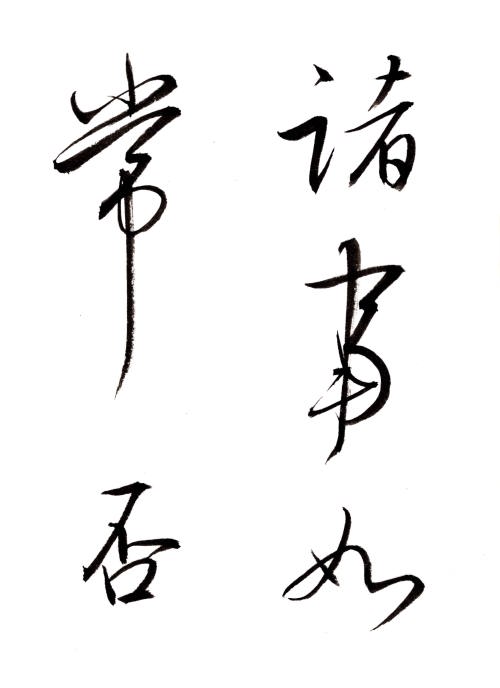 诸事如
常否